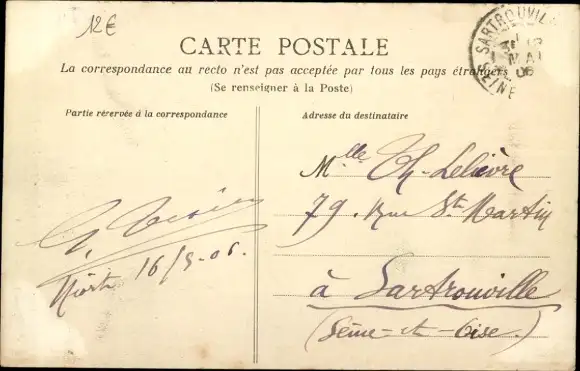 12€
CARTE POSTALE
La correspondance au recto n'est pas acceptée par tous les pays étrangers
(Se renseigner à la Poste)
SARTROUVILLE
MAI
06
SEINE
Partie réservée à la correspondance
Adresse du destinataire
Mlle Th. Lelièvre
79. Rue St Martin
à Sartrouville
(Seine-et-Oise.)
Niort 16/5-06.